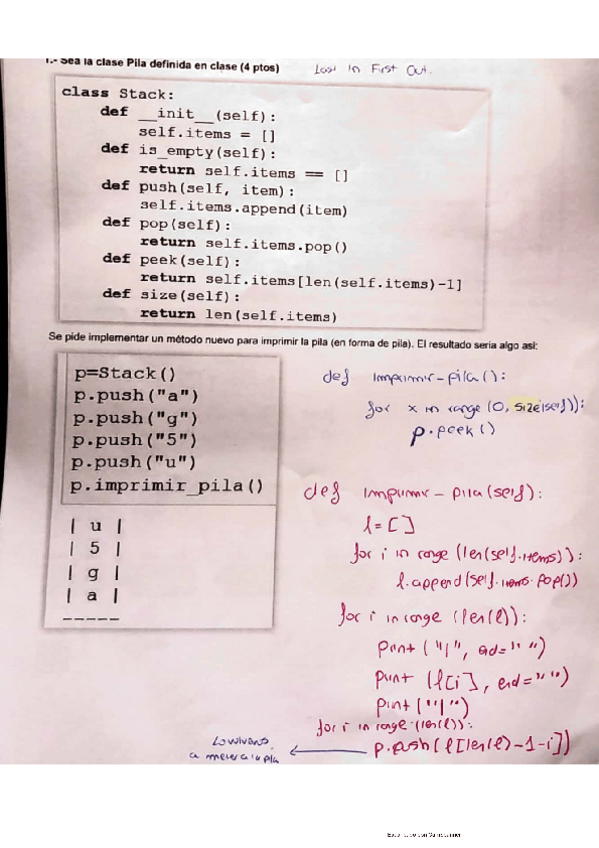 1.- Sea la clase Pila definida en clase (4 ptos)
Last In First Out.
class Stack:
def __init__(self):
self.items = []
def is_empty(self):
return self.items == []
def push(self, item):
self.items.append(item)
def pop(self):
return self.items.pop()
def peek(self):
return self.items[len(self.items)-1]
def size(self):
return len(self.items)
Se pide implementar un método nuevo para imprimir la pila (en forma de pila). El resultado seria algo asi:
p=Stack()
p.push("a")
p.push("g")
p.push("5")
p.push("u")
p.imprimir_pila()
| u |
| 5 |
| g |
| a |
-----
def imprimir-pila():
for x in range (0, size(self)):
p.peek()
def imprimir-pila(self):
l=[]
for i in range (len(self.items)):
l.append(self.items.pop())
for i in range (len(l)):
print ("|", end=" ")
print (l[i], end=" ")
print ("|")
for i in range (len(l)):
p.push(l[len(l)-1-i])
Lo volvemos
a meter a la pila